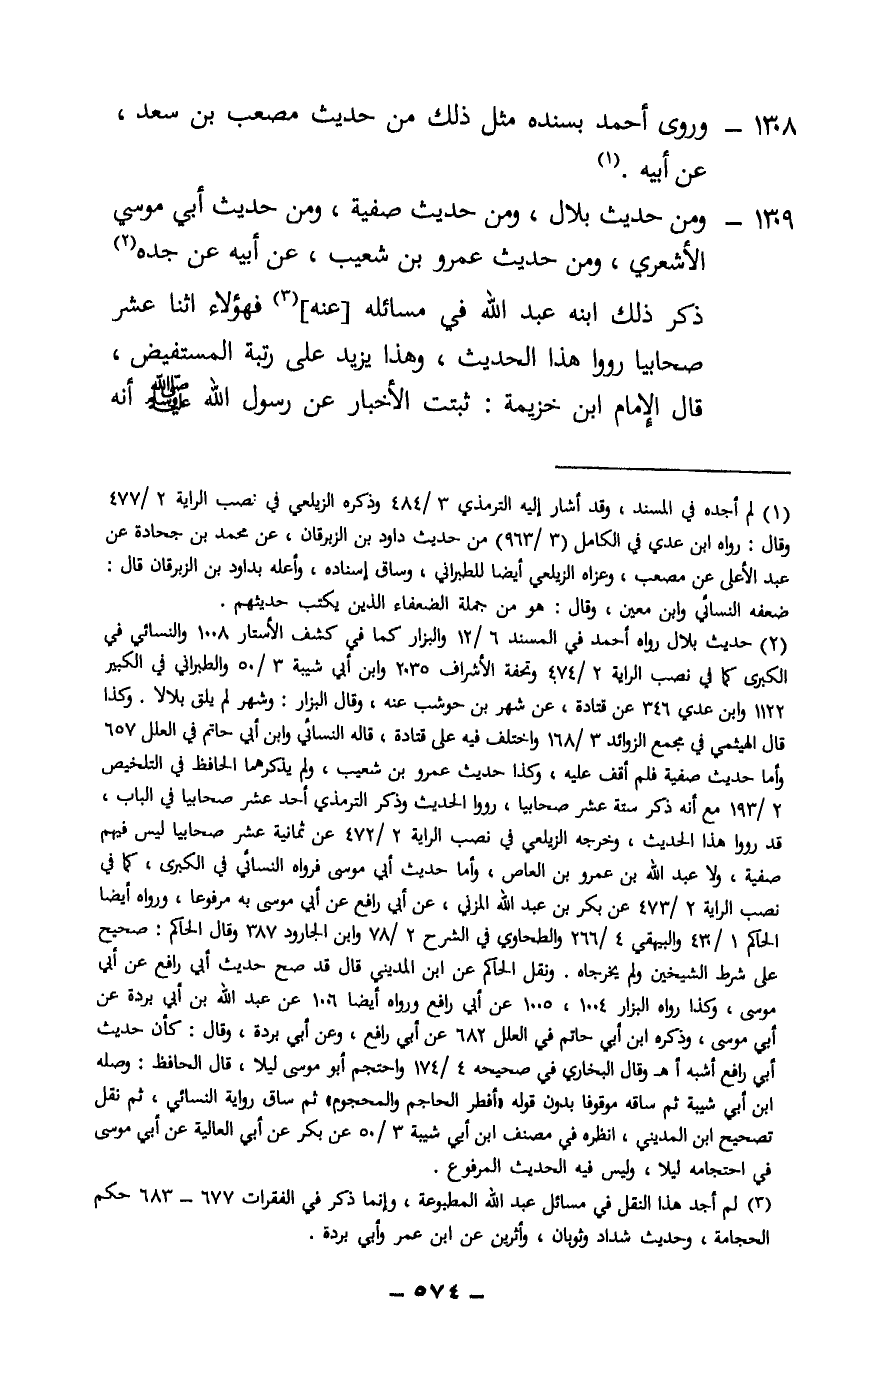 ١٣٠٨ – وروى أحمد بسنده مثل ذلك من حديث مصعب بن سعد ،
عن أبيه .(١)
١٣٠٩ – ومن حديث بلال ، ومن حديث صفية ، ومن حديث أبي موسي
الأشعري ، ومن حديث عمرو بن شعيب ، عن أبيه عن جده(٢)
ذكر ذلك ابنه عبد الله في مسائله [عنه](٣) فهؤلاء اثنا عشر
صحابيا رووا هذا الحديث ، وهذا يزيد على رتبة المستفيض ،
قال الإمام ابن خزيمة : ثبتت الأخبار عن رسول الله ﷺ أنه
(١) لم أجده في المسند ، وقد أشار إليه الترمذي ٣ /٤٨٤ وذكره الزيلعي في نصب الراية ٢ /٤٧٧
وقال : رواه ابن عدي في الكامل (٣ /٩٦٣) من حديث داود بن الزبرقان ، عن محمد بن جحادة عن
عبد الأعلى عن مصعب ، وعزاه الزيلعي أيضا للطبراني ، وساق إسناده ، وأعله بداود بن الزبرقان قال :
ضعفه النسائي وابن معين ، وقال : هو من جملة الضعفاء الذين يكتب حديثهم .
(٢) حديث بلال رواه أحمد في المسند ٦ /١٢ والبزار كما في كشف الأستار ١٠٠٨ والنسائي في
الكبرى كما في نصب الراية ٢ /٤٧٤ وتحفة الأشراف ٢٠٣٥ وابن أبي شيبة ٣ /٥٠ والطبراني في الكبير
١١٢٢ وابن عدي ٣٤٦ عن قتادة ، عن شهر بن حوشب عنه ، وقال البزار : وشهر لم يلق بلالا . وكذا
قال الهيثمي في مجمع الزوائد ٣ /١٦٨ واختلف فيه على قتادة ، قاله النسائي وابن أبي حاتم في العلل ٦٥٧
وأما حديث صفية فلم أقف عليه ، وكذا حديث عمرو بن شعيب ، ولم يذكرهما الحافظ في التلخيص
٢ /١٩٣ مع أنه ذكر ستة عشر صحابيا ، رووا الحديث وذكر الترمذي أحد عشر صحابيا في الباب ،
قد رووا هذا الحديث ، وخرجه الزيلعي في نصب الراية ٢ /٤٧٢ عن ثمانية عشر صحابيا ليس فيهم
صفية ، ولا عبد الله بن عمرو بن العاص ، وأما حديث أبي موسى فرواه النسائي في الكبرى ، كما في
نصب الراية ٢ /٤٧٣ عن بكر بن عبد الله المزني ، عن أبي رافع عن أبي موسى به مرفوعا ، ورواه أيضا
الحاكم ١ /٤٣٠ والبيهقي ٤ /٢٦٦ والطحاوي في الشرح ٢ /٧٨ وابن الجارود ٣٨٧ وقال الحاكم : صحيح
على شرط الشيخين ولم يخرجاه . ونقل الحاكم عن ابن المديني قال قد صح حديث أبي رافع عن أبي
موسى ، وكذا رواه البزار ١٠٠٤ ، ١٠٠٥ عن أبي رافع ورواه أيضا ١٠٠٦ عن عبد الله بن أبي بردة عن
أبي موسى ، وذكره ابن أبي حاتم في العلل ٦٨٢ عن أبي رافع ، وعن أبي بردة ، وقال : كأن حديث
أبي رافع أشبه أ هـ وقال البخاري في صحيحه ٤ /١٧٤ واحتجم أبو موسى ليلا ، قال الحافظ : وصله
ابن أبي شيبة ثم ساقه موقوفا بدون قوله «أفطر الحاجم والمحجوم» ثم ساق رواية النسائي ، ثم نقل
تصحيح ابن المديني ، انظره في مصنف ابن أبي شيبة ٣ /٥٠ عن بكر عن أبي العالية عن أبي موسى
في احتجامه ليلا ، وليس فيه الحديث المرفوع .
(٣) لم أجد هذا النقل في مسائل عبد الله المطبوعة ، وإنما ذكر في الفقرات ٦٧٧ – ٦٨٣ حكم
الحجامة ، وحديث شداد وثوبان ، وأثرين عن ابن عمر وأبي بردة .
– ٥٧٤ –